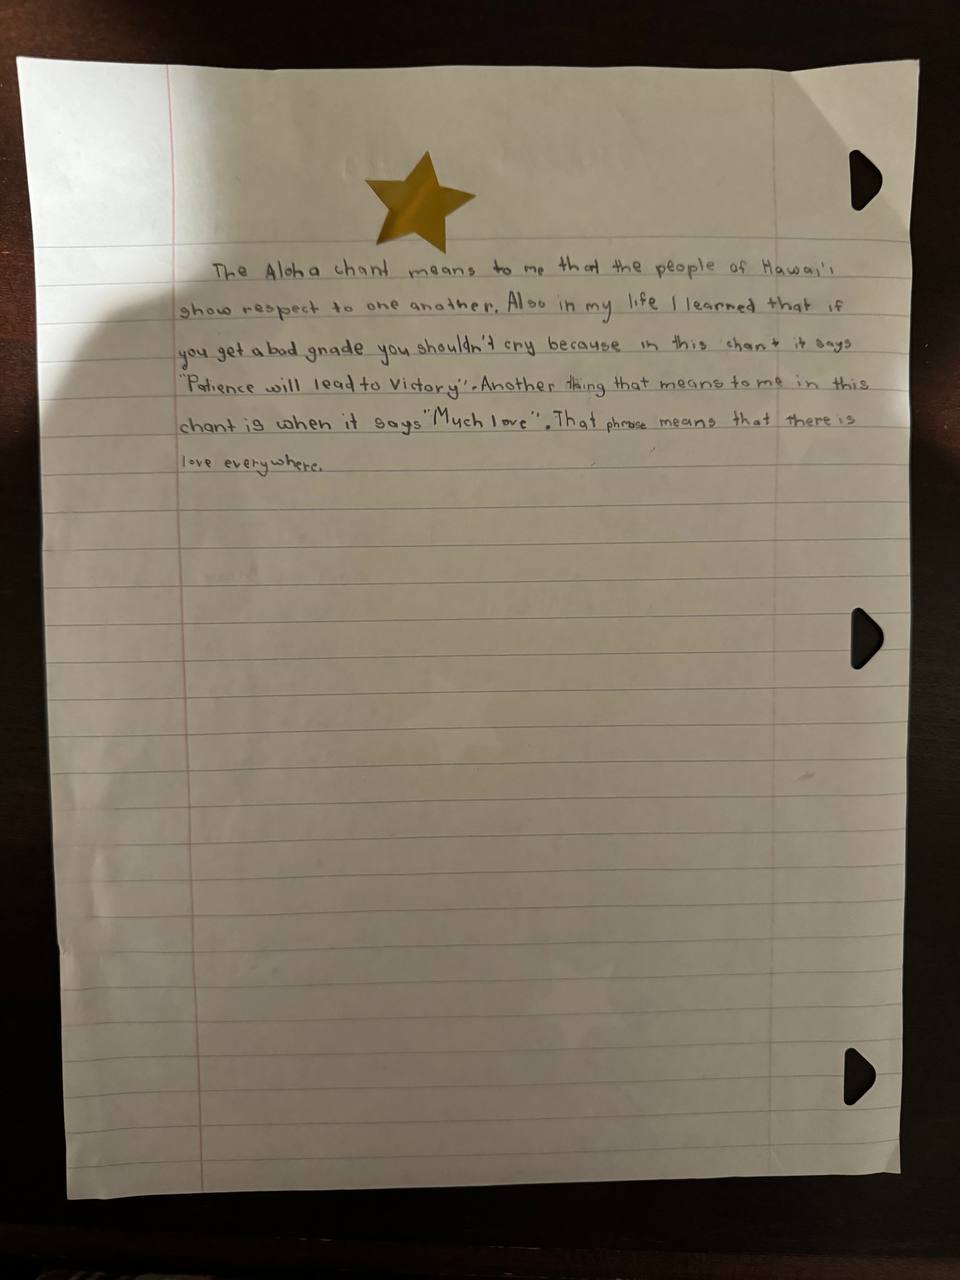 The Aloha chant means to me that the people of Hawai'i
show respect to one another. Also in my life I learned that if
you get a bad grade you shouldn't cry because in this chant it says
"Patience will lead to Victory". Another thing that means to me in this
chant is when it says "Much love". That phrase means that there is
love everywhere.